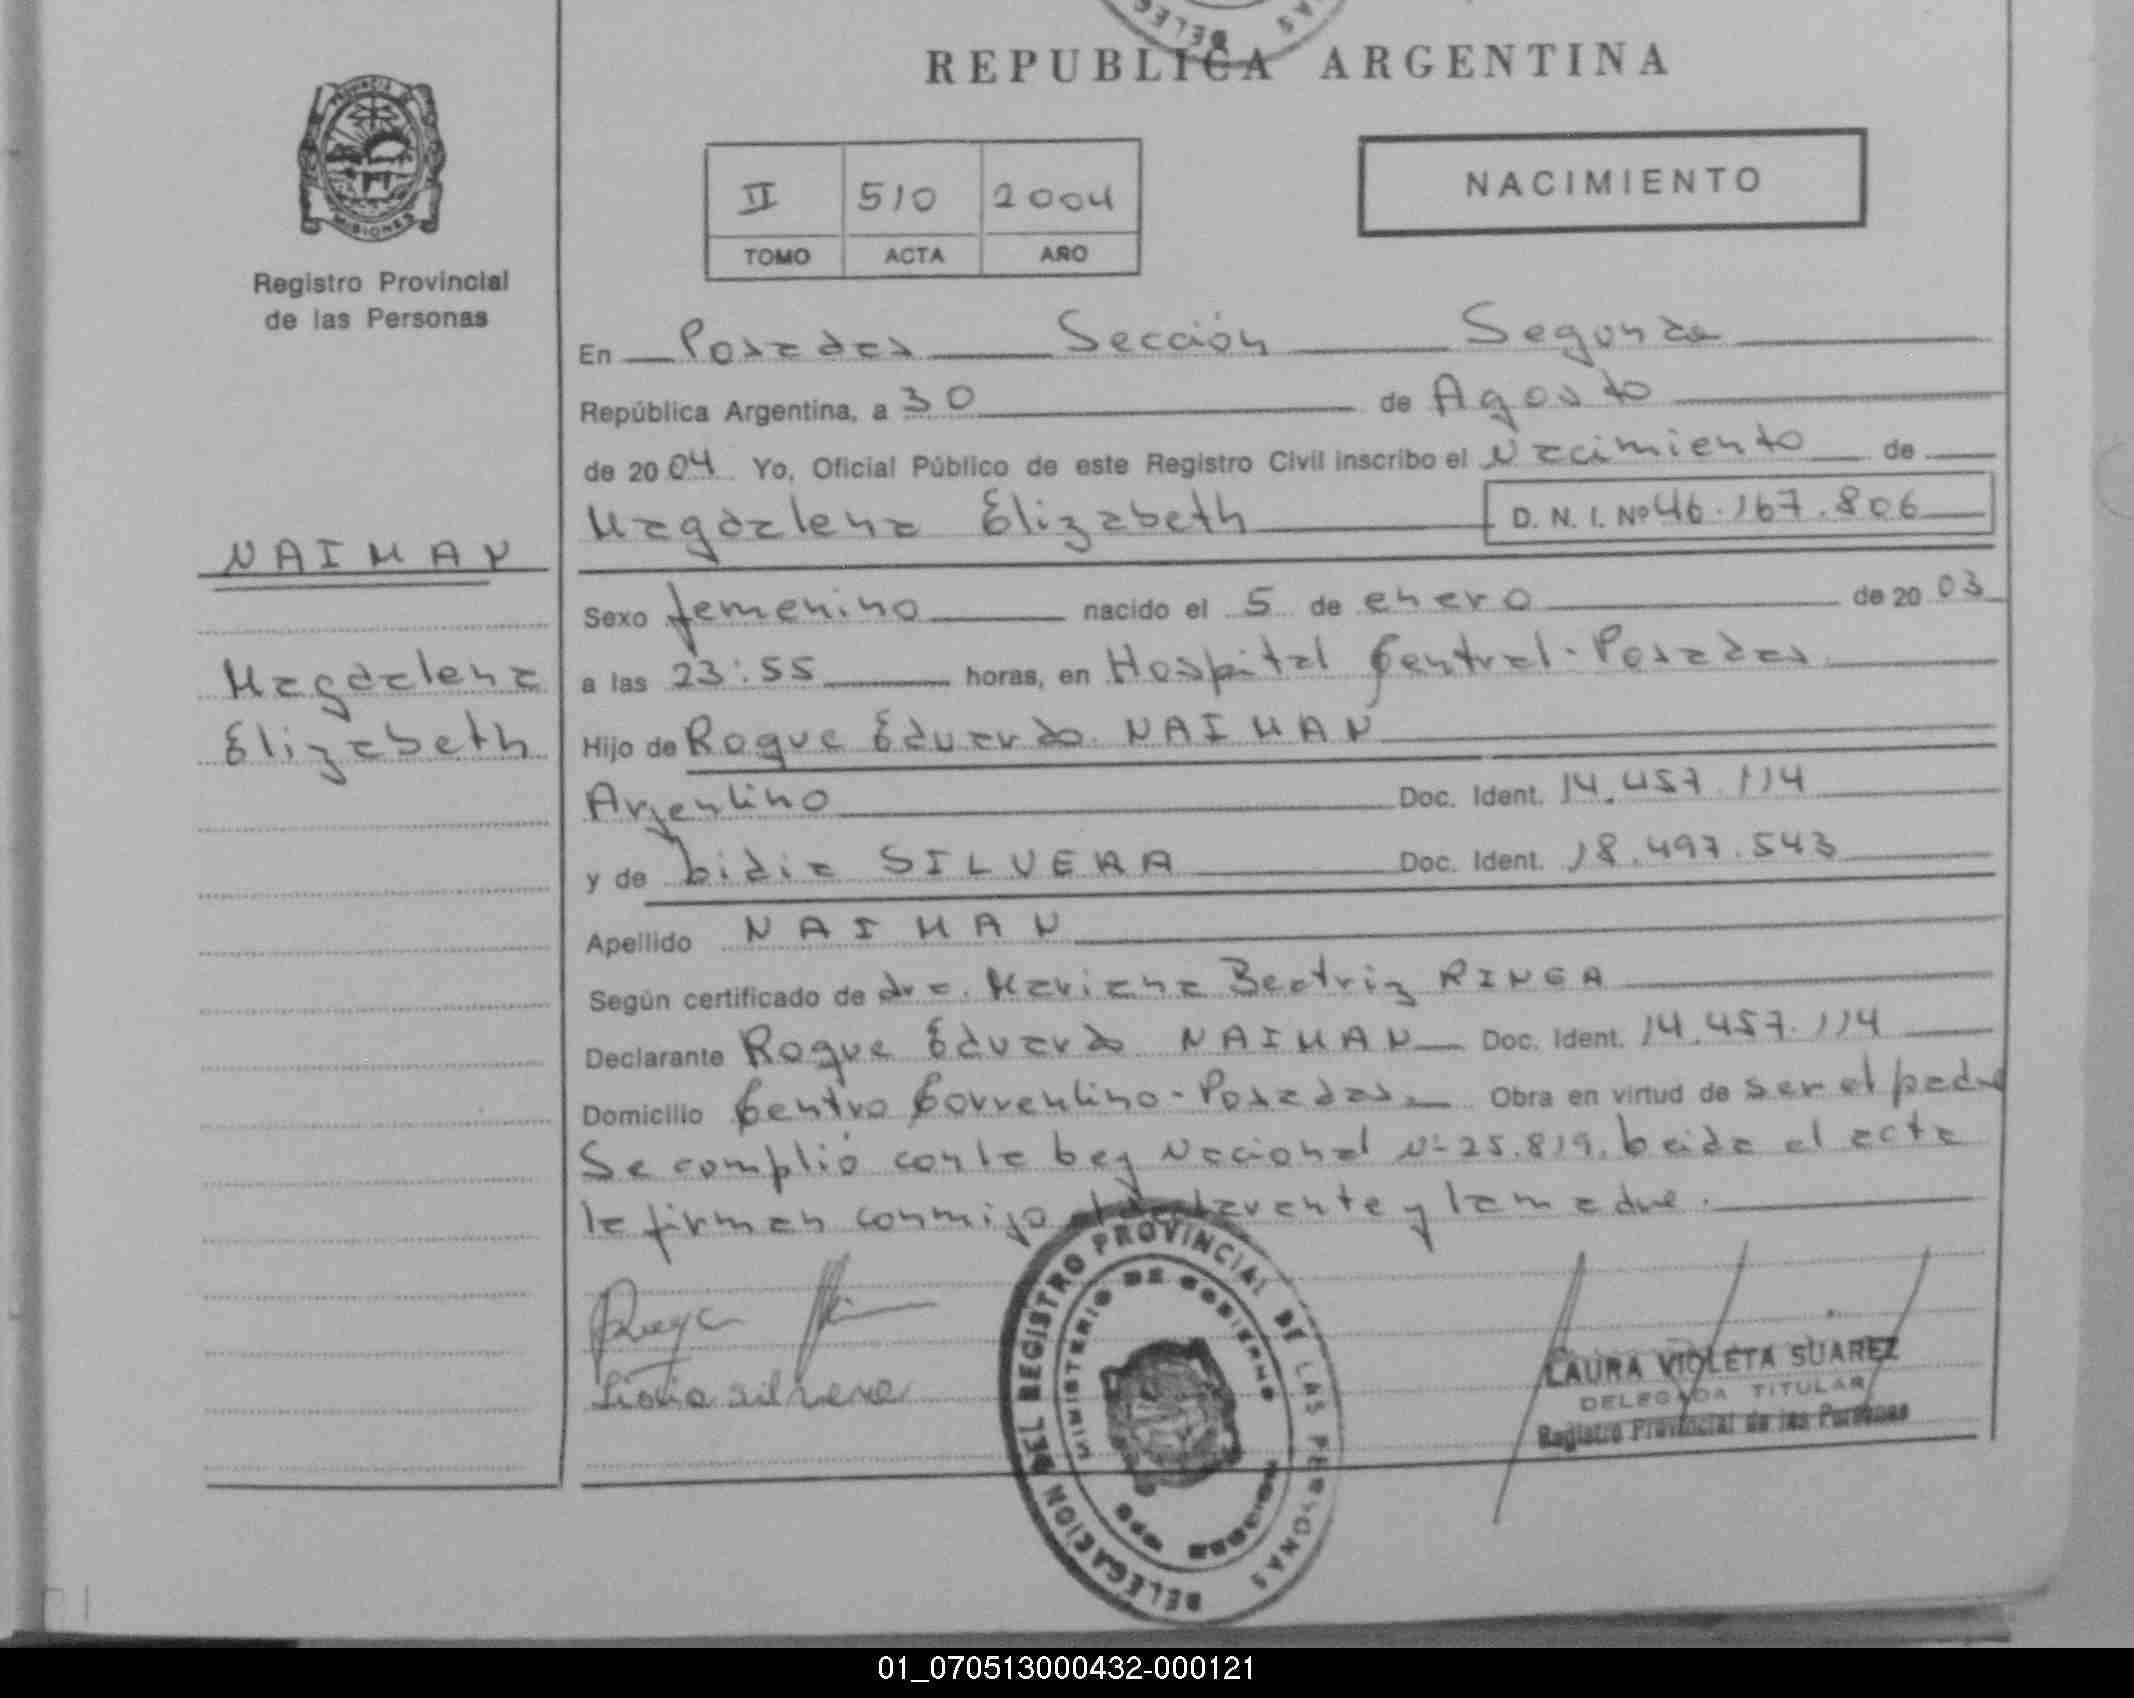 REPUBLICA ARGENTINA
PROVINCIA DE
MISIONES
Registro Provincial
de las Personas
II 510 2004
TOMO ACTA AÑO
NACIMIENTO
En Posadas Sección Segunda
República Argentina, a 30 de Agosto
de 2004 Yo, Oficial Público de este Registro Civil inscribo el Nacimiento de
Magdalena Elizabeth D. N. I. Nº 46.167.806
NAIMAN
Magdalena
Elizabeth
Sexo femenino nacido el 5 de enero de 2003
a las 23:55 horas, en Hospital Central-Posadas
Hijo de Roque Eduardo NAIMAN
Argentino Doc. Ident. 14.457.114
y de Lidia SILVERA Doc. Ident. 18.497.543
Apellido NAIMAN
Según certificado de dra. Mariana Beatriz RINGA
Declarante Roque Eduardo NAIMAN Doc. Ident. 14.457.114
Domicilio Centro Correntino-Posadas. Obra en virtud de ser el padre
Se complió con la Ley Nacional Nº 25.819. Leida el acta
la firman conmigo el declarante y la madre.
Lidia Silvera
DELEGACION DEL REGISTRO PROVINCIAL DE LAS PERSONAS
MINISTERIO DE GOBIERNO
LAURA VIOLETA SUAREZ
DELEGADA TITULAR
Registro Provincial de las Personas
01_070513000432-000121